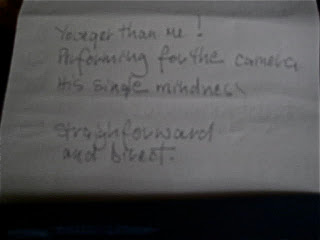 Younger than me!
Performing for the camera
His single mindness
Straighforward
and Direct.